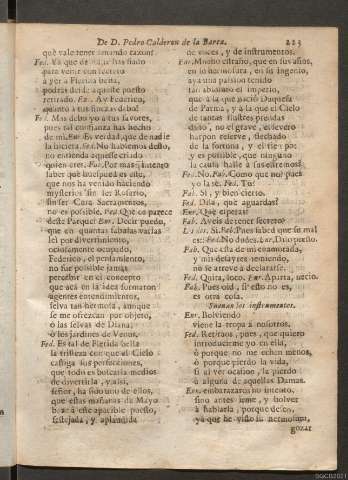 De D. Pedro Calderon de la Barca. 223
què vale tener amando razon?
Fed. Ya que de nadie has fiado
para venir con secreto
à ver a Flerida bella,
podràs desde aqueste puesto
retirado. En. Ay Federico,
quanto à tus finezas debo!
Fed. Mas debo yo à tus favores,
pues tal confiança has hecho
de mì. En. Es verdad, que de nadie
la hiciera. Fed. No hablemos desto,
no entienda aqueste criado
quien eres. Fab. Por mas que intento
saber què huesped es este,
que nos ha venido haciendo
mysterios sin ser Rosario,
sin ser Cura Sacramentos,
no es possible. Fed. Què os parece
deste Parque? Enr. Decir puedo,
que en quantas fabulas varias
leì por divertimiento,
ociosamente ocupado,
Federico, el pensamiento,
no fue possible jamàs
percebir en el concepto
que acà en la idea formaron
agentes entendimientos,
selva tan hermosa, aunque
se me ofrezcan por objeto,
ò las selvas de Diana,
ò los jardines de Venus.
Fed. Es tal de Flerida bella
la tristeza con que el Cielo
castiga sus perfecciones,
que todo es buscarla medios
de divertirla, y assi,
señor, ha sido uno de ellos,
que estas mañanas de Mayo
baxe à este apacible puesto,
festejada, y aplaudida
de voces, y de instrumentos.
Enr. Mucho estraño, que en sus años,
en su hermosura, en su ingenio,
aya una passion tenido
tan absoluto el imperio,
que à la que naciò Duquesa
de Parma, y à la que el Cielo
de tantas ilustres prendas
dotò, no el grave, el severo
harpon releve, flechado
de la fortuna, y el tiempo:
y es possible, que ninguno
la causa halle à sus estremos?
Fed. No. Fab. Como que no? pues
yo la sè. Fed. Tu?
Fab. Si, y bien cierto.
Fed. Dila, què aguardas?
Enr. Què esperas?
Fab. Aveis de tener secreto?
Los dos. Si. Fab. Pues sabed que su mal
es:: Fed. No dudes. Enr. Dilo presto.
Fab. Que està de mì enamorada,
y mis desayres temiendo,
no se atreve à declararse.
Fed. Quita, loco. Enr. Aparta, necio.
Fab. Pues oìd, si esto no es,
es otra cosa.
Suenan los instrumentos.
Enr. Bolviendo
viene la tropa à nosotros.
Fed. Retiraos, pues, que quiero
introducirme yo en ella,
ò porque no me echen menos,
ò porque pierdo la vida,
si al ver ocasion, la pierdo
ò alguna de aquellas Damas.
Enr. embarazaros no intento,
sino antes irme, y bolver
à hablarla, porque deseo,
ya que he visto su hermosura,
gozar
SGCB2021